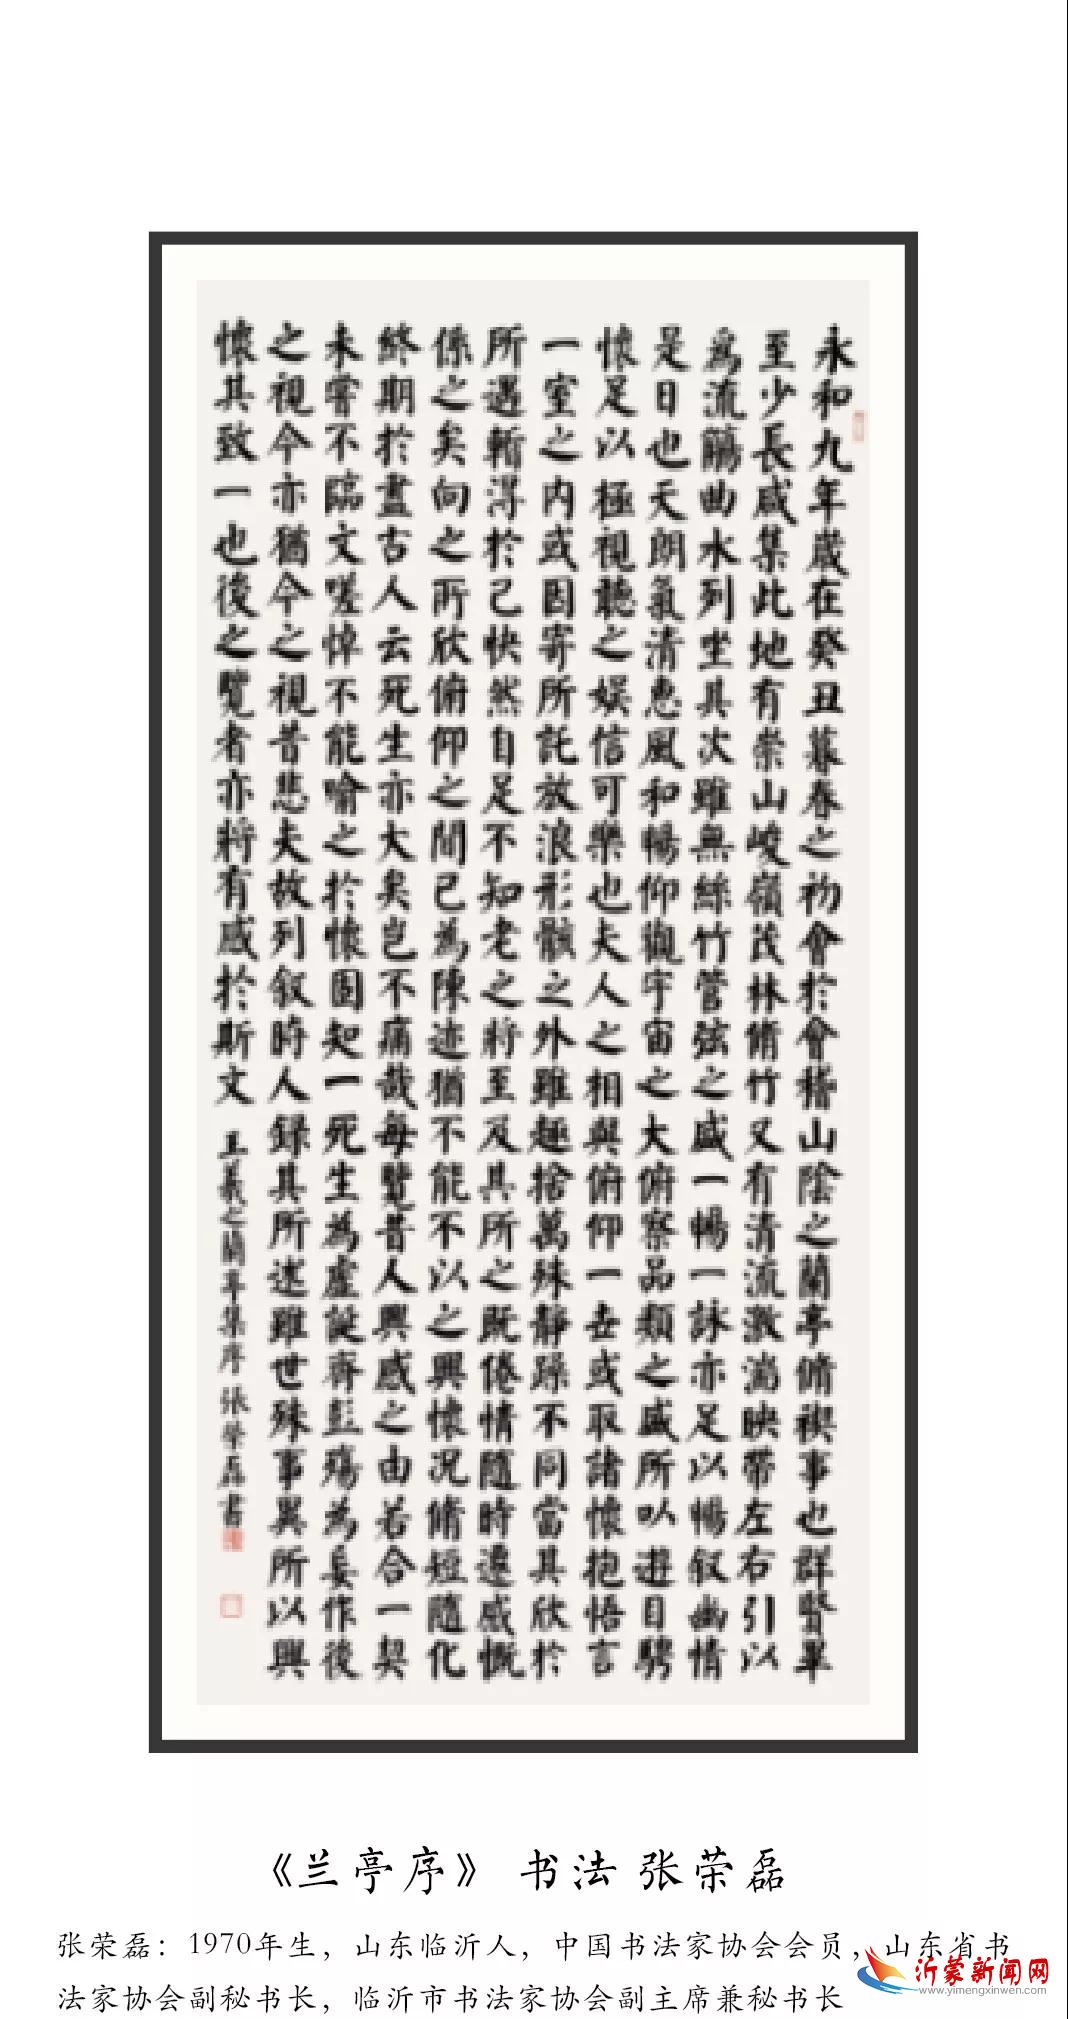 永和九年歲在癸丑暮春之初會於會稽山陰之蘭亭脩禊事也群賢畢
至少長咸集此地有崇山峻嶺茂林脩竹又有清流激湍映帶左右引以
為流觴曲水列坐其次雖無絲竹管弦之盛一觴一詠亦足以暢叙幽情
是日也天朗氣清惠風和暢仰觀宇宙之大俯察品類之盛所以遊目騁
懷足以極視聽之娛信可樂也夫人之相與俯仰一世或取諸懷抱悟言
一室之内或因寄所託放浪形骸之外雖趣捨萬殊靜躁不同當其欣於
所遇暫得於己快然自足不知老之將至及其所之既倦情隨時遷感慨
係之矣向之所欣俯仰之間已為陳迹猶不能不以之興懷況脩短隨化
終期於盡古人云死生亦大矣豈不痛哉每覽昔人興感之由若合一契
未嘗不臨文嗟悼不能喻之於懷固知一死生為虛誕齊彭殤為妄作後
之視今亦猶今之視昔悲夫故列叙時人録其所述雖世殊事異所以興
懷其致一也後之覽者亦將有感於斯文 王羲之蘭亭集序 張榮磊書
《兰亭序》 书法 张荣磊
张荣磊：1970年生，山东临沂人，中国书法家协会会员，山东省书
法家协会副秘书长，临沂市书法家协会副主席兼秘书长
沂蒙新闻网
www.yimengxinwen.com